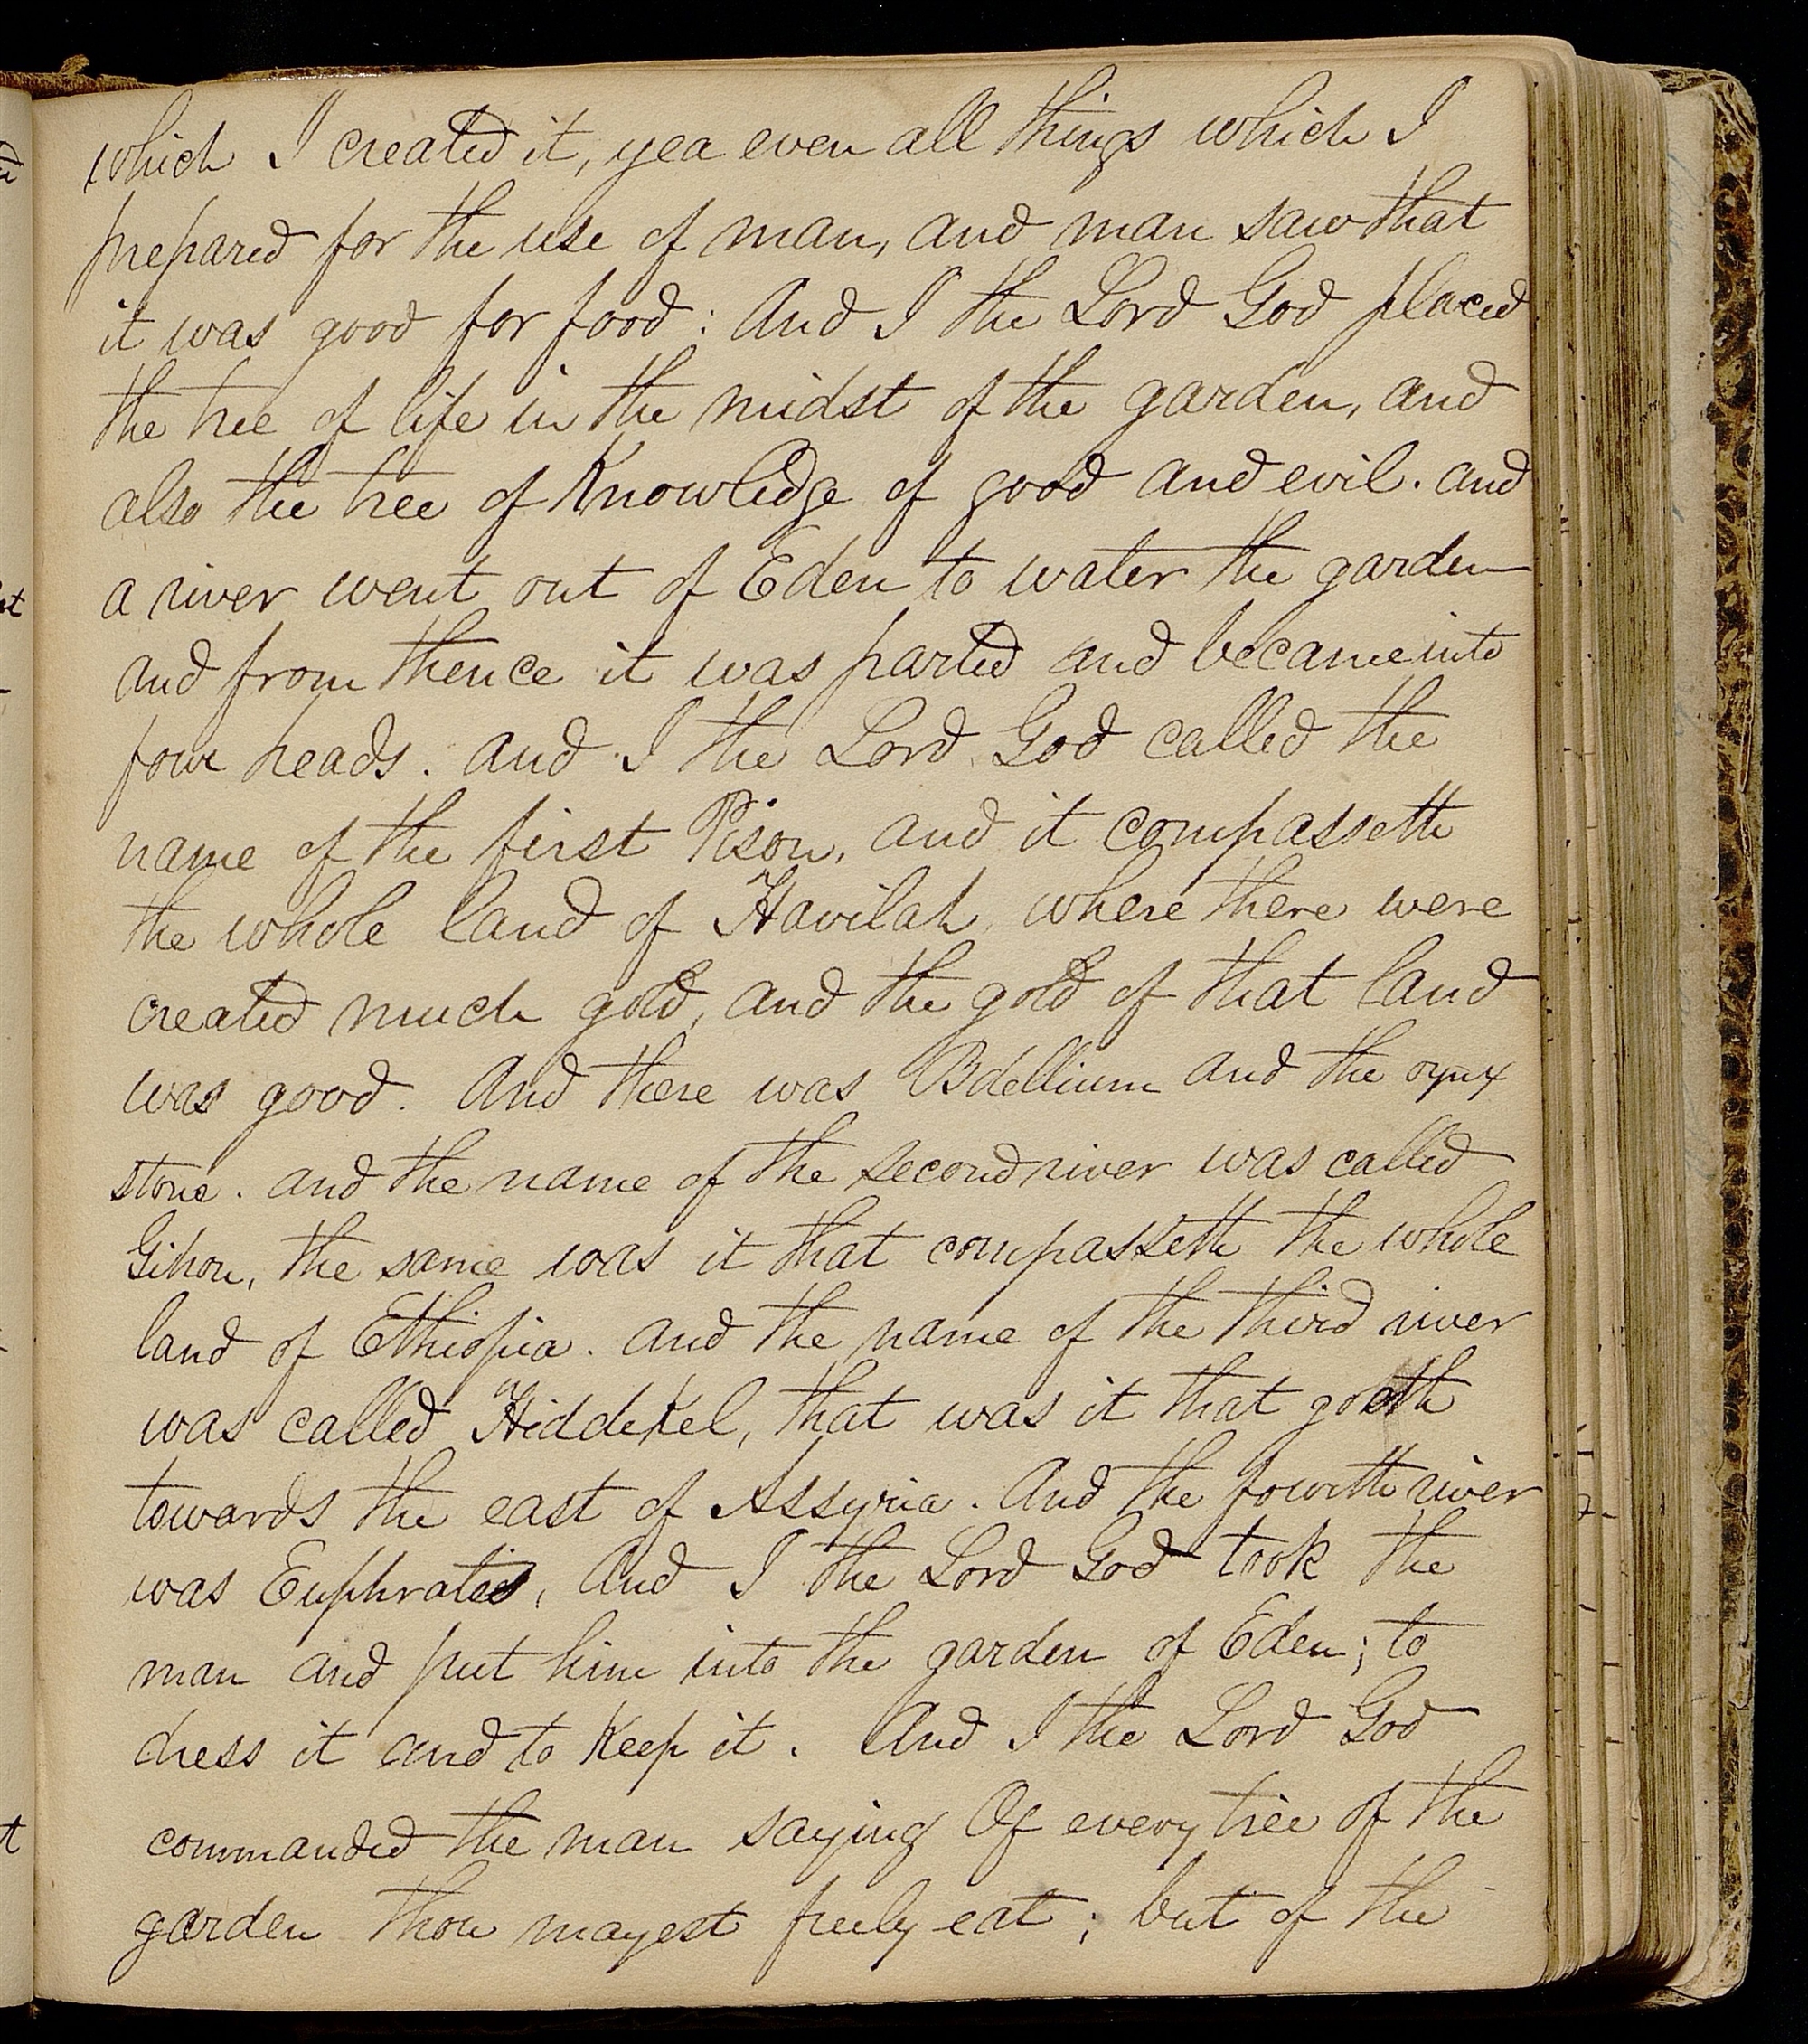 which I created it, yea even all things which I
prepared for the use of man, and man saw that
it was good for food: And I the Lord God placed
the tree of life in the midst of the garden, and
also the tree of Knowledge of good and evil. and
a river went out of Eden to water the garden
and from thence it was parted and became into
four heads. and I the Lord God called the
name of the first Pison, and it compasseth
the whole land of Havilah, where there were
created much gold, and the gold of that land
was good. And there was Bdellium and the oynx
stone. and the name of the second river was called
Gihon, the same was it that compasseth the whole
land of Ethiopia. and the name of the third river
was called Hiddekel, that was it that goeth
towards the east of Assyria. And the fourth river
was Euphrates, And I the Lord God took the
man and put him into the garden of Eden; to
dress it and to Keep it. And I the Lord God
commanded the man saying Of every tree of the
garden thou mayest freely eat; but of the